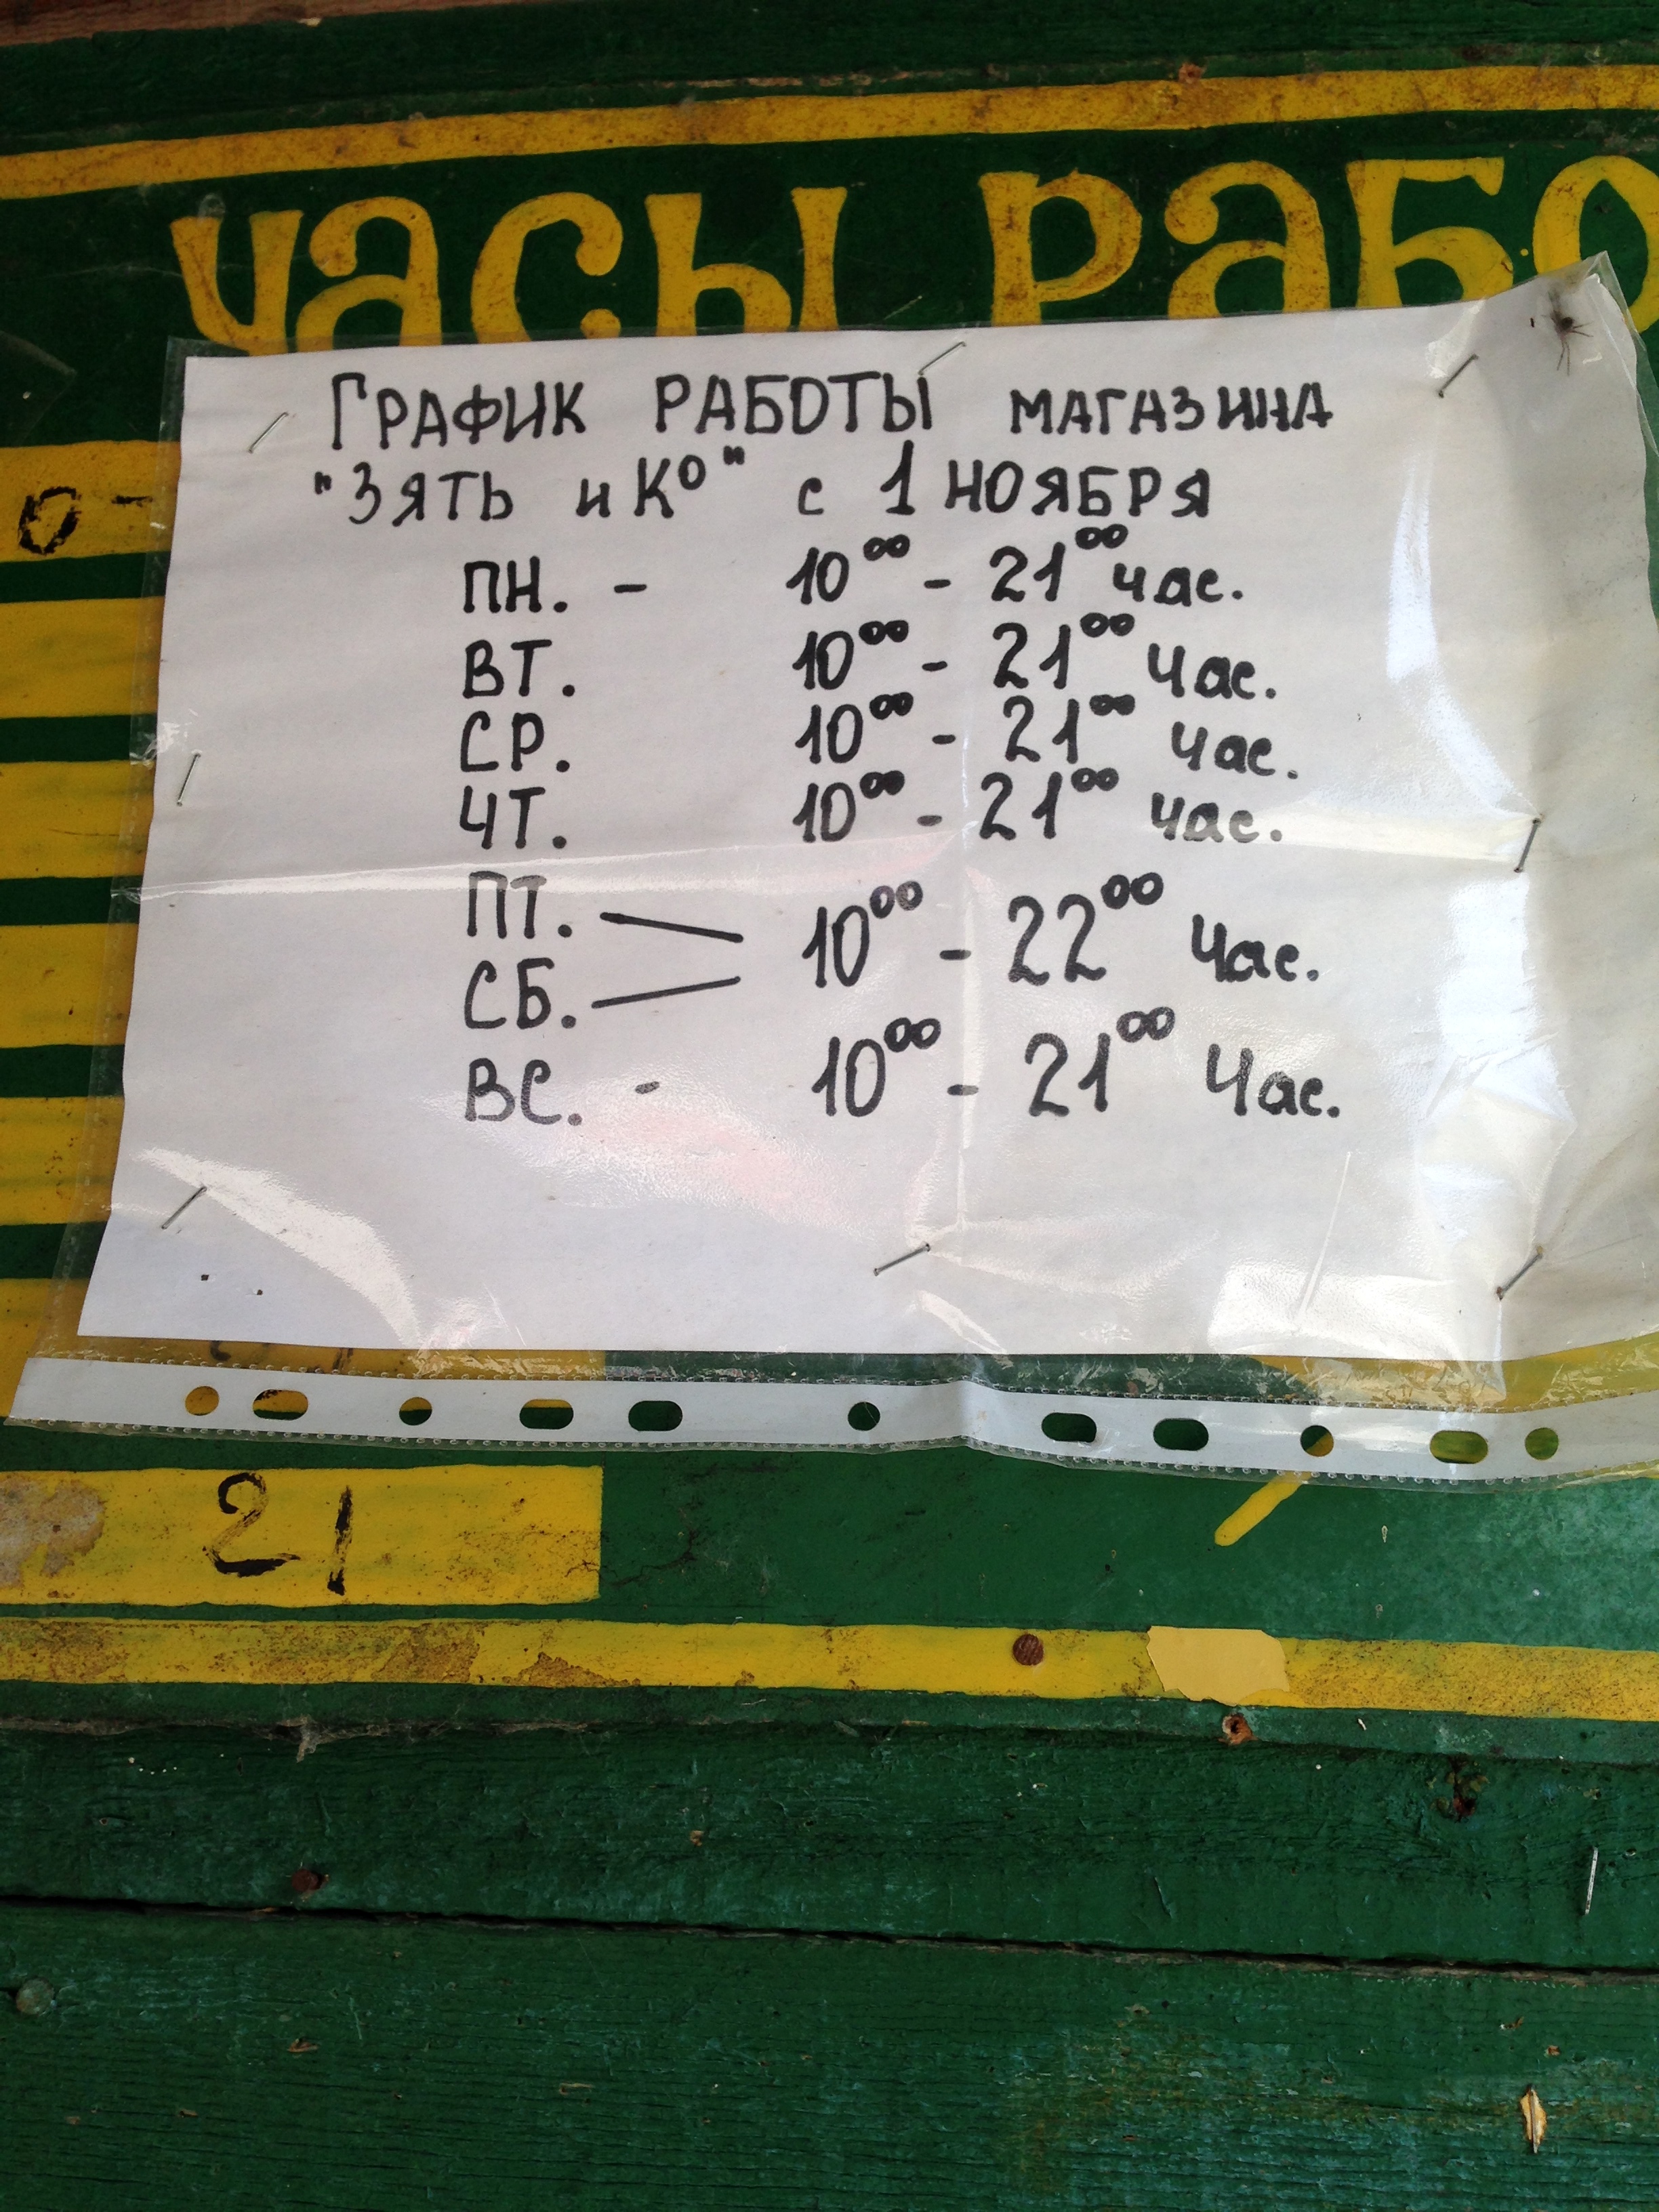 ЧАСЫ РАБО
ГРАФИК РАБОТЫ МАГАЗИНА
"ЗЯТЬ и К⁰" с 1 НОЯБРЯ
ПН. - 10⁰⁰ - 21⁰⁰ час.
ВТ. 10⁰⁰ - 21⁰⁰ час.
СР. 10⁰⁰ - 21⁰⁰ час.
ЧТ. 10⁰⁰ - 21⁰⁰ час.
ПТ.
10⁰⁰ - 22⁰⁰ час.
СБ.
ВС. - 10⁰⁰ - 21⁰⁰ час.
0 -
21